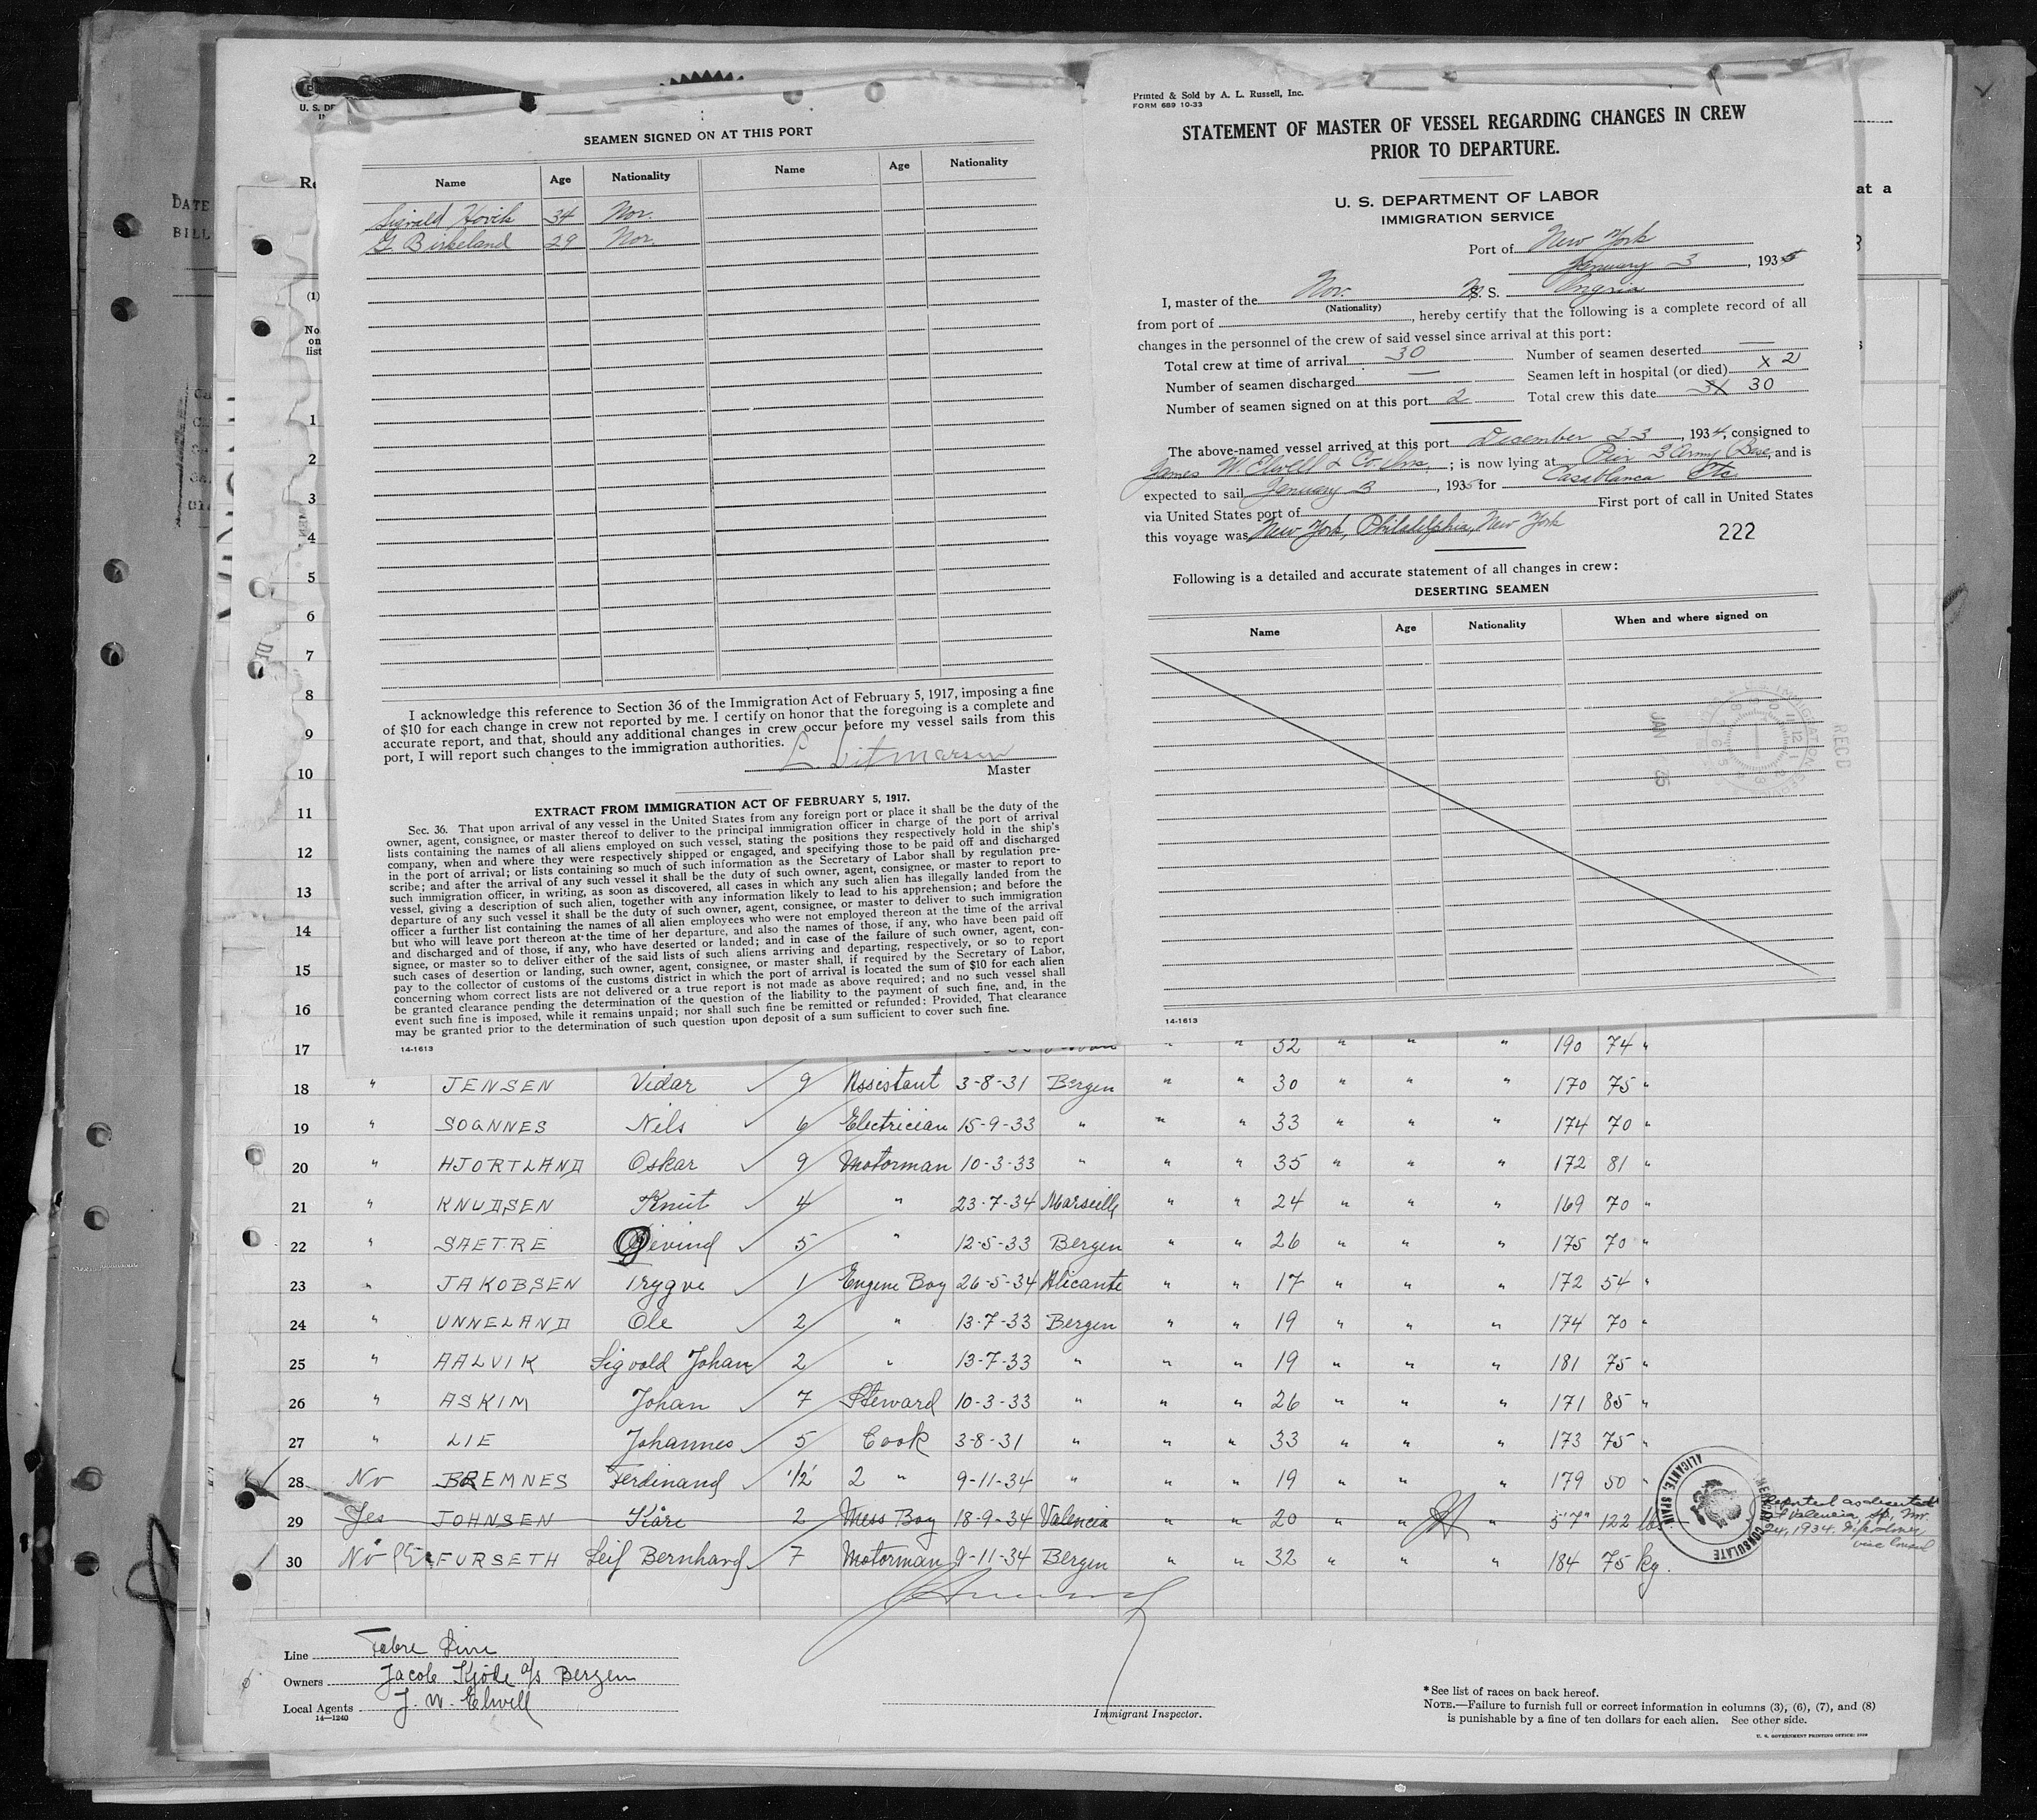 U. S. DE
IN
SEAMEN SIGNED ON AT THIS PORT
Name Age Nationality Name Age Nationality
Sigvald Hovik 34 Nor.
G. Birkeland 29 Nor
I acknowledge this reference to Section 36 of the Immigration Act of February 5, 1917, imposing a fine
of $10 for each change in crew not reported by me. I certify on honor that the foregoing is a complete and
accurate report, and that, should any additional changes in crew occur before my vessel sails from this
port, I will report such changes to the immigration authorities.
Master
EXTRACT FROM IMMIGRATION ACT OF FEBRUARY 5, 1917.
Sec. 36. That upon arrival of any vessel in the United States from any foreign port or place it shall be the duty of the
owner, agent, consignee, or master thereof to deliver to the principal immigration officer in charge of the port of arrival
lists containing the names of all aliens employed on such vessel, stating the positions they respectively hold in the ship's
company, when and where they were respectively shipped or engaged, and specifying those to be paid off and discharged
in the port of arrival; or lists containing so much of such information as the Secretary of Labor shall by regulation pre-
scribe; and after the arrival of any such vessel it shall be the duty of such owner, agent, consignee, or master to report to
such immigration officer, in writing, as soon as discovered, all cases in which any such alien has illegally landed from the
vessel, giving a description of such alien, together with any information likely to lead to his apprehension; and before the
departure of any such vessel it shall be the duty of such owner, agent, consignee, or master to deliver to such immigration
officer a further list containing the names of all alien employees who were not employed thereon at the time of the arrival
but who will leave port thereon at the time of her departure, and also the names of those, if any, who have been paid off
and discharged and of those, if any, who have deserted or landed; and in case of the failure of such owner, agent, con-
signee, or master so to deliver either of the said lists of such aliens arriving and departing, respectively, or so to report
such cases of desertion or landing, such owner, agent, consignee, or master shall, if required by the Secretary of Labor,
pay to the collector of customs of the customs district in which the port of arrival is located the sum of $10 for each alien
concerning whom correct lists are not delivered or a true report is not made as above required; and no such vessel shall
be granted clearance pending the determination of the question of the liability to the payment of such fine, and, in the
event such fine is imposed, while it remains unpaid; nor shall such fine be remitted or refunded: Provided, That clearance
may be granted prior to the determination of such question upon deposit of a sum sufficient to cover such fine.
14-1613
Printed & Sold by A. L. Russell, Inc.
FORM 689 10-33
STATEMENT OF MASTER OF VESSEL REGARDING CHANGES IN CREW
PRIOR TO DEPARTURE.
U. S. DEPARTMENT OF LABOR
IMMIGRATION SERVICE
Port of New York
January 3, 1935
I, master of the Nor. M. S. Ingria
(Nationality)
from port of , hereby certify that the following is a complete record of all
changes in the personnel of the crew of said vessel since arrival at this port:
Total crew at time of arrival 30 Number of seamen deserted —
Number of seamen discharged — Seamen left in hospital (or died) x 2
Number of seamen signed on at this port 2 Total crew this date 31 30
The above-named vessel arrived at this port December 23, 1934, consigned to
James W. Elwell & Co. Inc. ; is now lying at Pier 3 Army Base, and is
expected to sail January 3, 1935 for Casablanca Etc
via United States port of First port of call in United States
this voyage was New York, Philadelphia, New York
222
Following is a detailed and accurate statement of all changes in crew:
DESERTING SEAMEN
Name Age Nationality When and where signed on
JAN
REC'D
14-1613
DATE
BILL
Re
at a
(1)
No.
on
list
1
2
3
4
5
6
7
8
9
10
11
12
13
14
15
16
17 " " 32 " " " 190 74 "
18 " JENSEN Vidar 9 Assistant 3-8-31 Bergen " " 30 " " " 170 75 "
19 " SOGNNES Nils 6 Electrician 15-9-33 " " " 33 " " " 174 70 "
20 " HJORTLAND Oskar 9 Motorman 10-3-33 " " " 35 " " " 172 81 "
21 " KNUDSEN Knut 4 " 23-7-34 Marseille " " 24 " " " 169 70 "
22 " SAETRE Oeivind 5 " 12-5-33 Bergen " " 26 " " " 175 70 "
23 " JAKOBSEN Trygve 1 Engine Boy 26-5-34 Alicante " " 17 " " " 172 54 "
24 " UNNELAND Ole 2 " 13-7-33 Bergen " " 19 " " " 174 70 "
25 " AALVIK Sigvold Johan 2 " 13-7-33 " " " 19 " " " 181 75 "
26 " ASKIM Johan 7 Steward 10-3-33 " " " 26 " " " 171 85 "
27 " LIE Johannes 5 Cook 3-8-31 " " " 33 " " " 173 75 "
28 No BREMNES Ferdinand 1/2 2 " 9-11-34 " " " 19 " " " 179 50 "
29 Yes JOHNSEN Kåre 2 Mess Boy 18-9-34 Valencia " " 20 " " " 5'7" 122 lb
30 No FURSETH Leif Bernhard 7 Motorman 9-11-34 Bergen " " 32 " " " 184 75 kg.
AMERICAN CONSULATE
ALICANTE, SPAIN
Reported as deserted
at Valencia, Sp, Nov.
24, 1934.
Vice Consul
Line Fabre Line
Owners Jacob Kjöde a/s Bergen
Local Agents J. W. Elwell
14—1240
Immigrant Inspector.
* See list of races on back hereof.
NOTE.—Failure to furnish full or correct information in columns (3), (6), (7), and (8)
is punishable by a fine of ten dollars for each alien. See other side.
U. S. GOVERNMENT PRINTING OFFICE: 1929